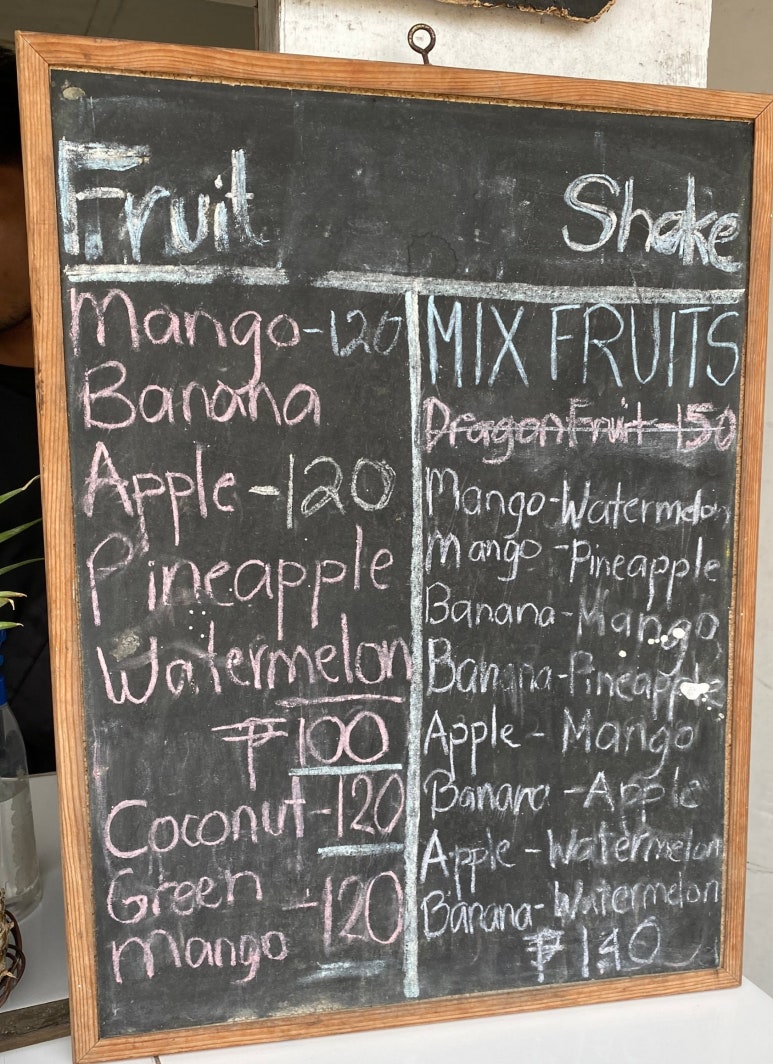 Fruit Shake
Mango-120
Banana
Apple-120
Pineapple
Watermelon
₱100
Coconut-120
Green
Mango -120
MIX FRUITS
Dragon Fruit-150
Mango-Watermelon
Mango-Pineapple
Banana-Mango
Banana-Pineapple
Apple-Mango
Banana-Apple
Apple-Watermelon
Banana-Watermelon
₱140